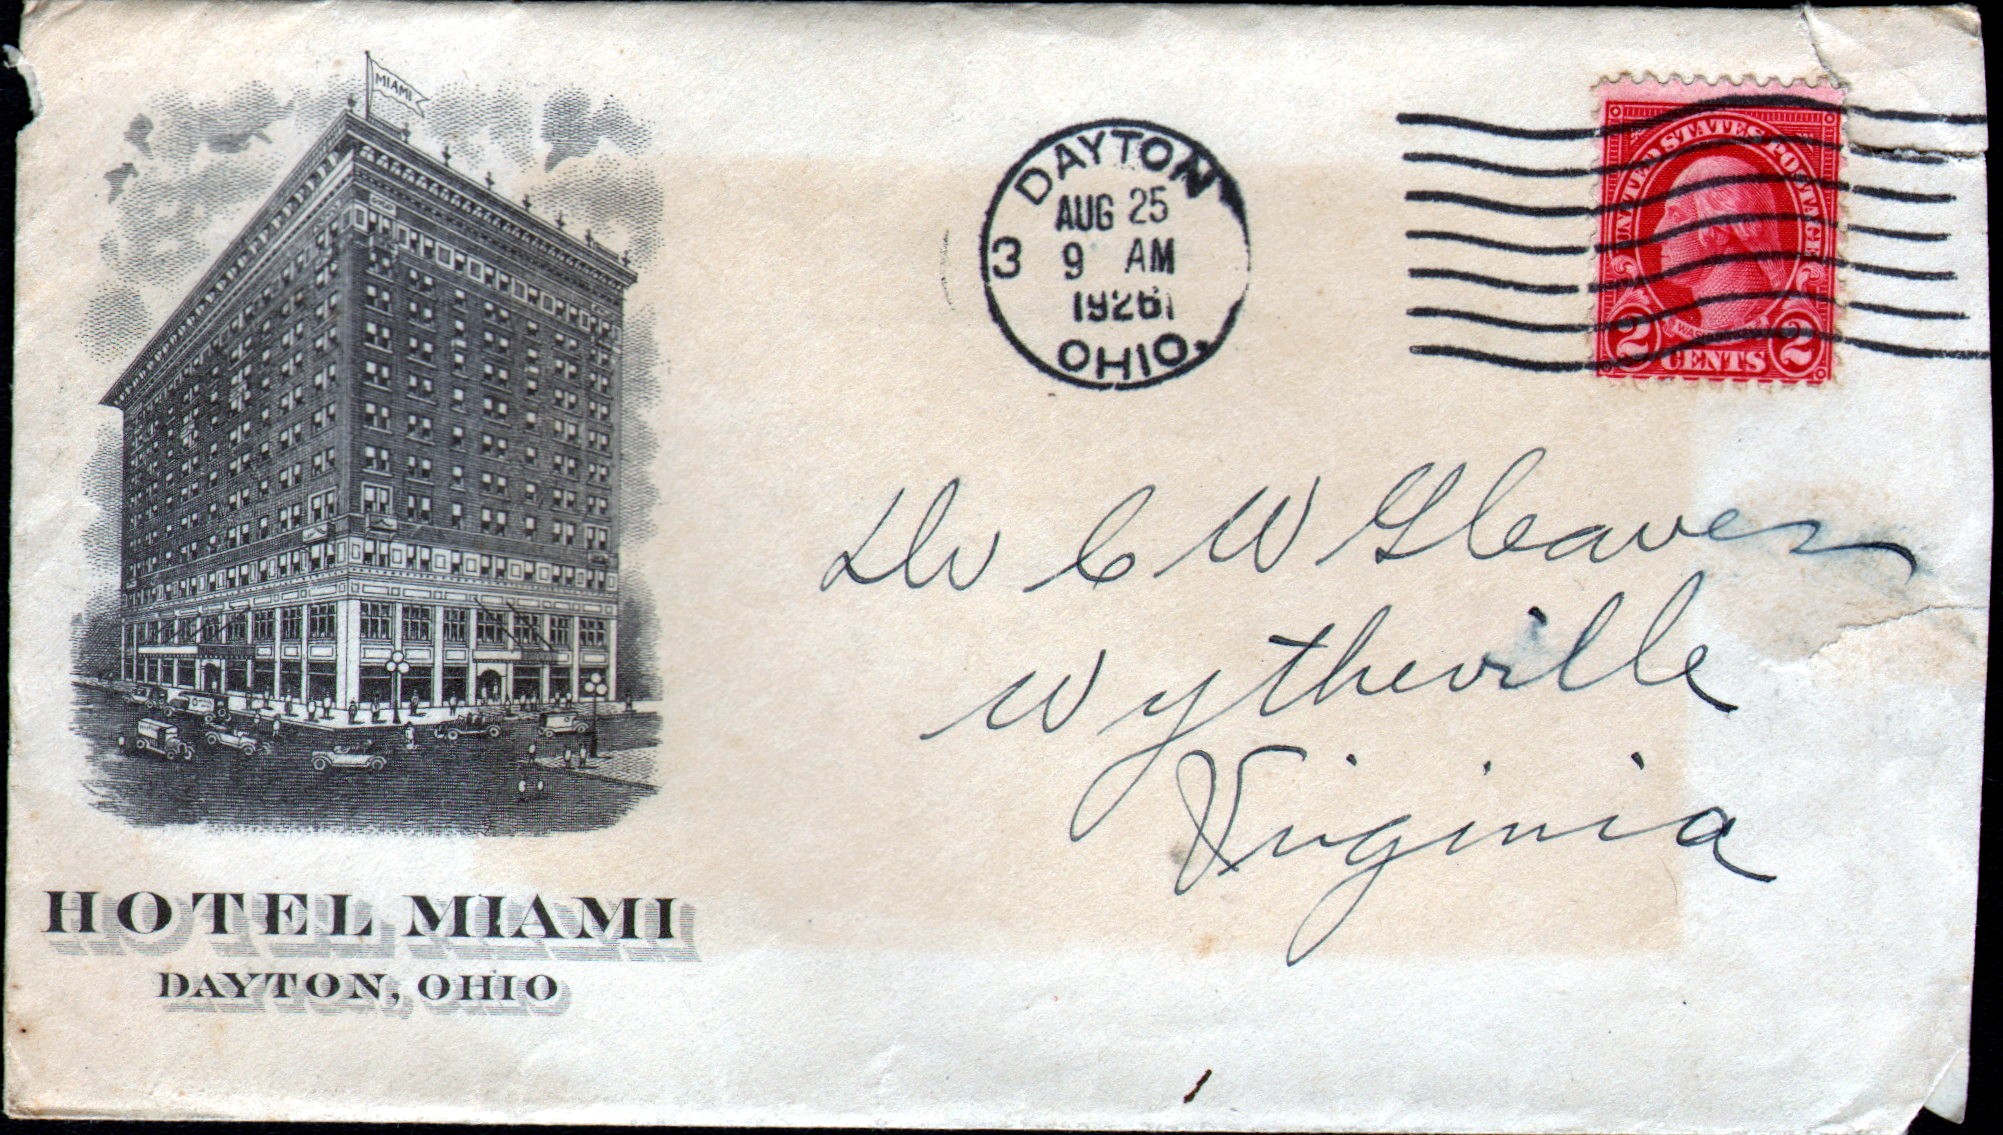 MIAMI
HOTEL MIAMI
DAYTON, OHIO
DAYTON
AUG 25
3 9 AM
1926
OHIO.
UNITED STATES POSTAGE
2 CENTS 2
Dr C W Gleaves
Wytheville
Virginia